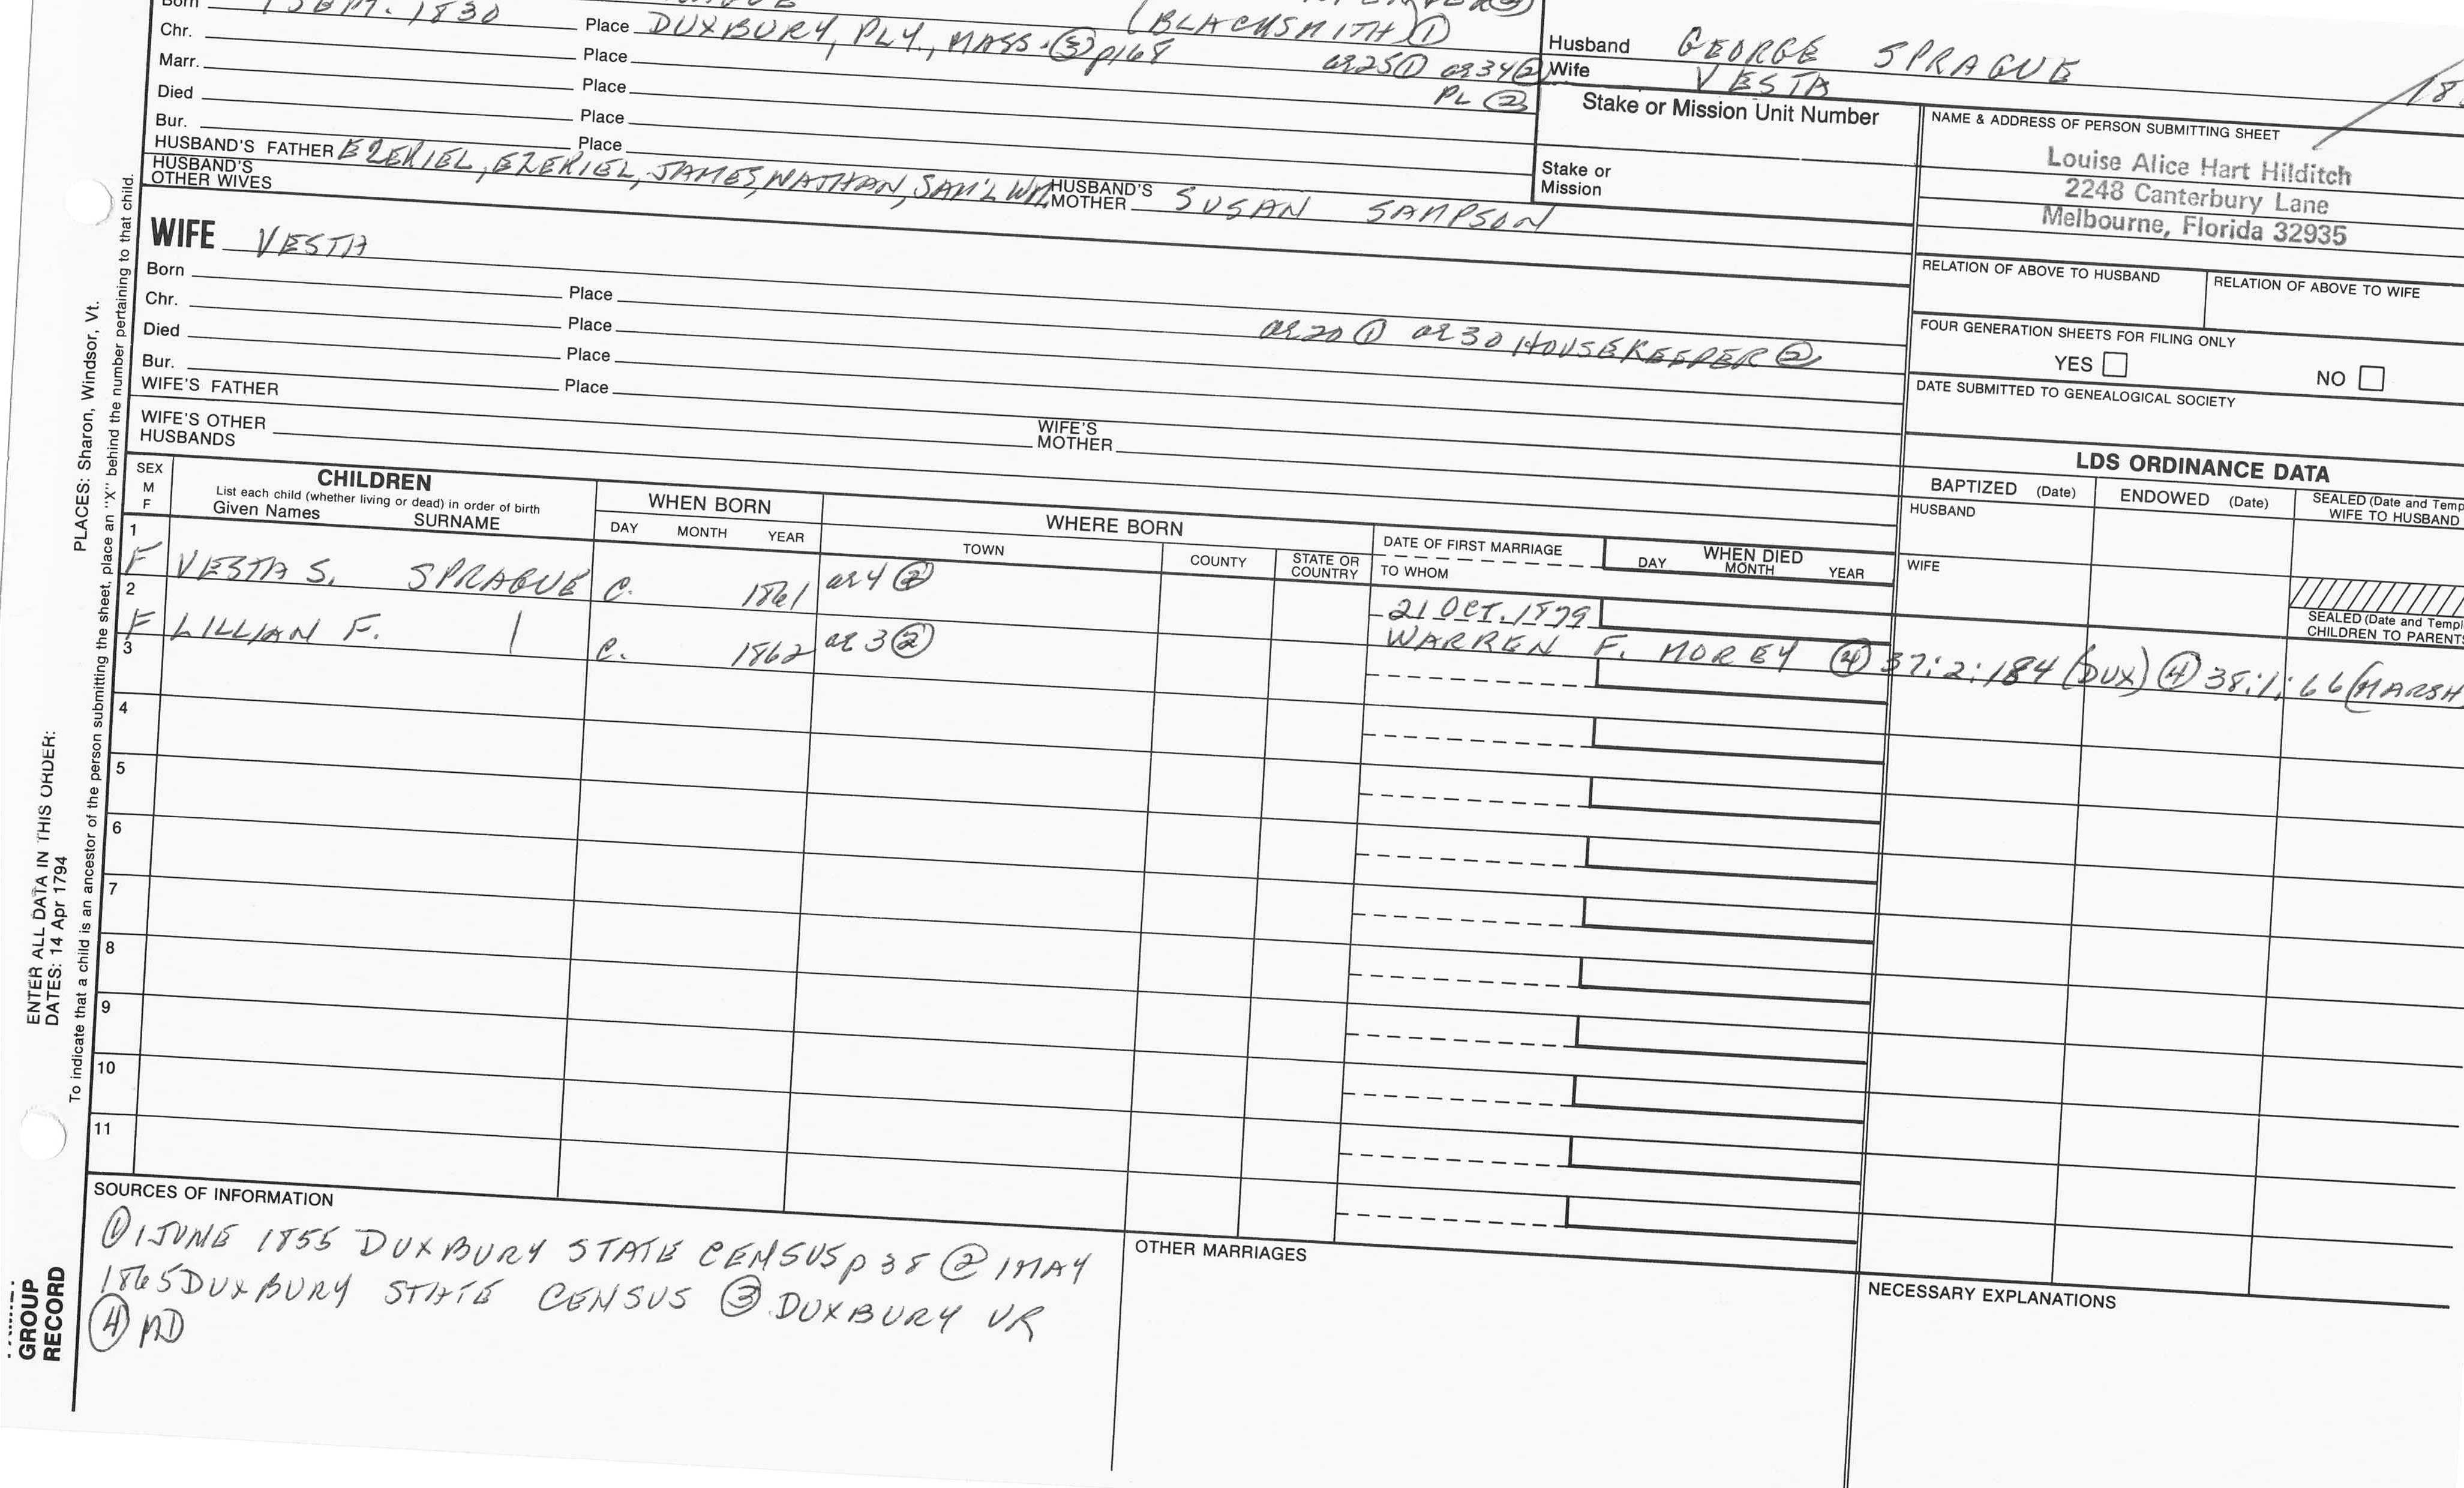 Born 1 SEPT. 1830 Place DUXBURY, PLY., MASS. ③ p168 (BLACKSMITH) ①
Chr. Place ae 25 ① ae 34 ②
Marr. Place PL ②
Died Place
Bur. Place
HUSBAND'S FATHER EZEKIEL, EZEKIEL, JAMES, NATHAN, SAM'L WM. HUSBAND'S MOTHER SUSAN SAMPSON
HUSBAND'S OTHER WIVES
Husband GEORGE SPRAGUE
Wife VESTA
Stake or Mission Unit Number
Stake or
Mission
NAME & ADDRESS OF PERSON SUBMITTING SHEET
Louise Alice Hart Hilditch
2248 Canterbury Lane
Melbourne, Florida 32935
RELATION OF ABOVE TO HUSBAND RELATION OF ABOVE TO WIFE
FOUR GENERATION SHEETS FOR FILING ONLY
YES NO
DATE SUBMITTED TO GENEALOGICAL SOCIETY
WIFE VESTA
Born Place
Chr. Place ae 20 ① ae 30 HOUSEKEEPER ②
Died Place
Bur. Place
WIFE'S FATHER WIFE'S MOTHER
WIFE'S OTHER HUSBANDS
LDS ORDINANCE DATA
BAPTIZED (Date) ENDOWED (Date) SEALED (Date and Temp
WIFE TO HUSBAND
HUSBAND
WIFE
SEALED (Date and Templ
CHILDREN TO PARENTS
SEX
M
F
CHILDREN
List each child (whether living or dead) in order of birth
Given Names SURNAME
WHEN BORN
DAY MONTH YEAR
WHERE BORN
TOWN COUNTY STATE OR COUNTRY
DATE OF FIRST MARRIAGE
TO WHOM
WHEN DIED
DAY MONTH YEAR
1 F VESTA S. SPRAGUE C. 1861 ae 4 ②
21 OCT. 1879
WARREN F. MOREY ④ 37:2:184 (DUX) ④ 38:1:66 (MARSH
2 F LILLIAN F. | C. 1862 ae 3 ②
3
4
5
6
7
8
9
10
11
SOURCES OF INFORMATION
① 1 JUNE 1855 DUXBURY STATE CENSUS p 38 ② 1 MAY
1865 DUXBURY STATE CENSUS ③ DUXBURY VR
④ MD
OTHER MARRIAGES
NECESSARY EXPLANATIONS
PLACES: Sharon, Windsor, Vt.
ENTER ALL DATA IN THIS ORDER:
DATES: 14 Apr 1794
To indicate that a child is an ancestor of the person submitting the sheet, place an "X" behind the number pertaining to that child.
GROUP
RECORD